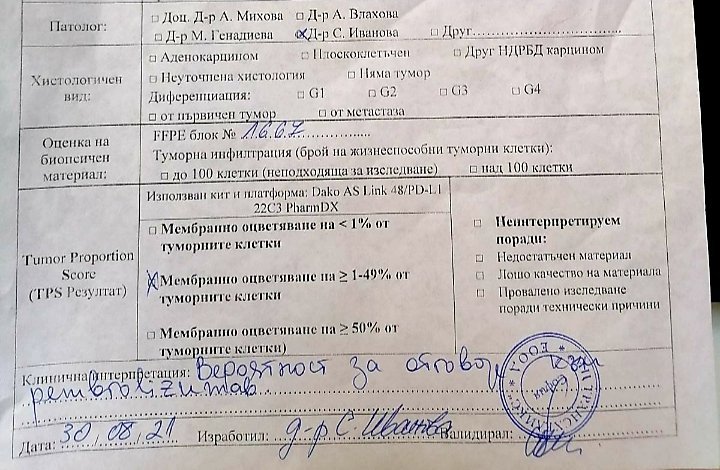 Патолог: □ Доц. Д-р А. Михова □ Д-р А. Влахова
□ Д-р М. Генадиева □ Д-р С. Иванова □ Друг
Хистологичен вид: □ Аденокарцином □ Плоскоклетъчен □ Друг НДРБД карцином
□ Неуточнена хистология □ Няма тумор
Диференциация: □ G1 □ G2 □ G3 □ G4
□ от първичен тумор □ от метастаза
Оценка на биопсичен материал: FFPE блок № 1667
Туморна инфилтрация (брой на жизнеспособни туморни клетки):
□ до 100 клетки (неподходяща за изследване) □ над 100 клетки
Tumor Proportion Score (TPS Резултат)
Използван кит и платформа: Dako AS Link 48/PD-L1
22C3 PharmDX
□ Мембранно оцветяване на < 1% от
туморните клетки
Мембранно оцветяване на ≥ 1-49% от
туморните клетки
□ Мембранно оцветяване на ≥ 50% от
туморните клетки)
□ Неинтерпретируем
поради:
□ Недостатъчен материал
□ Лошо качество на материала
□ Провалено изследване
поради технически причини
Клинична интерпретация: Вероятност за отговор към
pembrolizumab
Дата: 30/08/21 Изработил: д-р С. Иванова Валидирал:
ЕООД
София